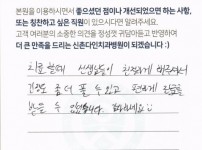 본원을 이용하시면서 좋으셨던 점이나 개선되었으면 하는 사항,
또는 칭찬하고 싶은 직원이 있으시다면 알려주세요.
고객 여러분의 소중한 의견을 정성껏 귀담아듣고 반영하여
더 큰 만족을 드리는 신촌다인치과병원이 되겠습니다 :)
치료할때 선생님들이 친절하게 해주셔서
긴장도 좀 더 풀 수 있고 편하게 진료를
받을 수 있었습니다. 감사합니다